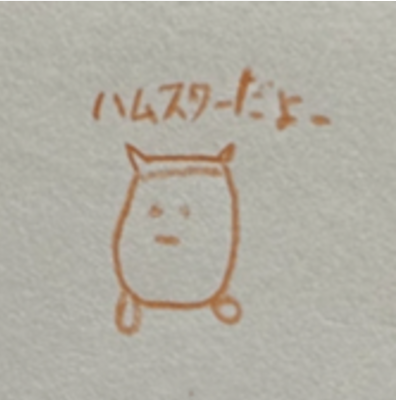 ハムスターだよー